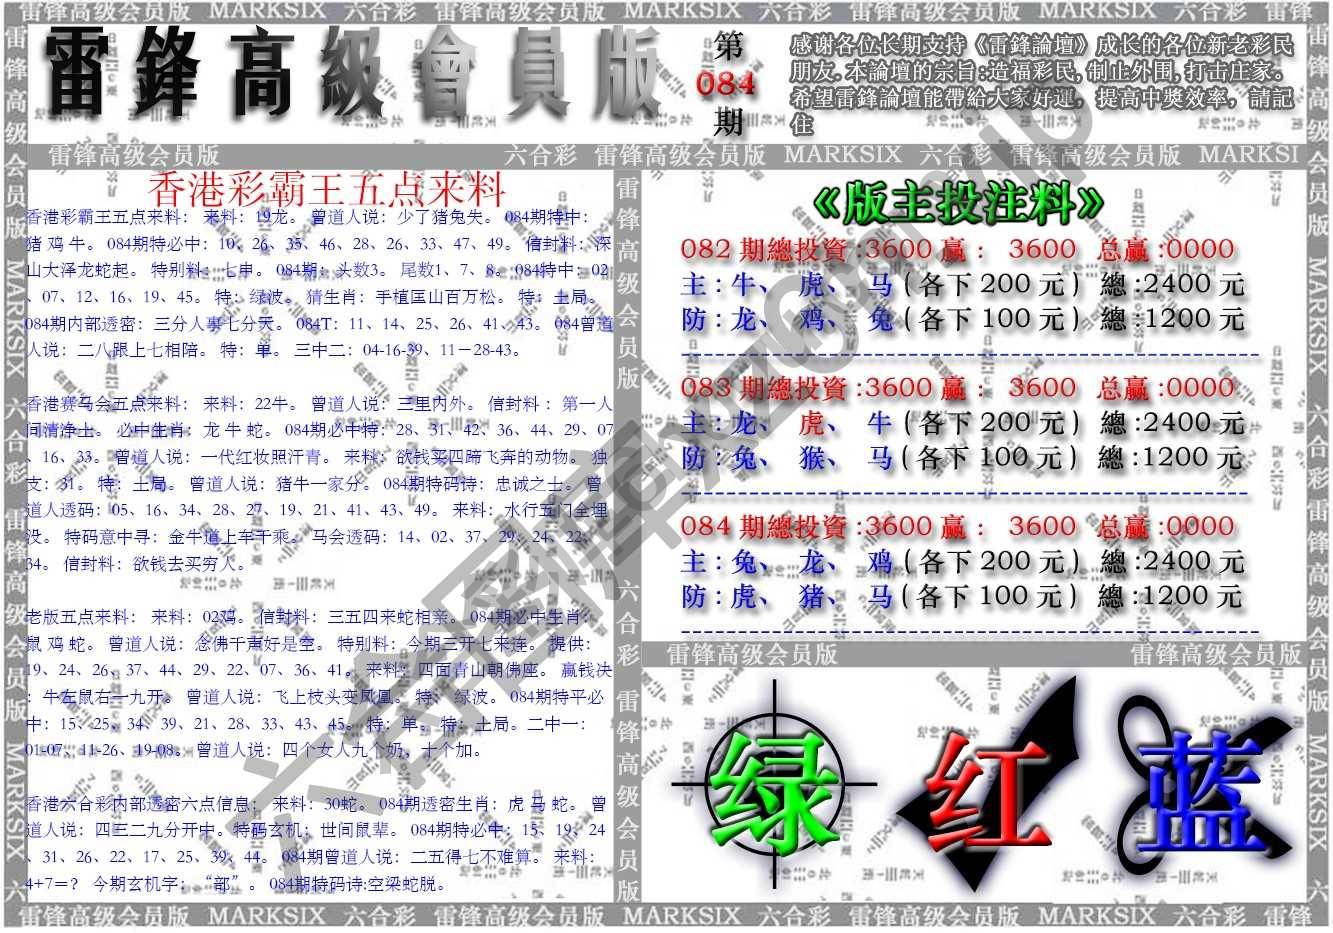 雷锋高级会员版 MARKSIX 六合彩 雷锋高级会员版 MARKSIX 六合彩 雷锋高级会员版 MARKSIX 六合彩 雷锋
雷鋒高級會員版
第
084
期
感谢各位长期支持《雷鋒論壇》成长的各位新老彩民
朋友.本論壇的宗旨:造福彩民,制止外围,打击庄家。
希望雷鋒論壇能帶給大家好運，提高中獎效率，請記
住
雷锋高级会员版 六合彩 雷锋高级会员版 MARKSIX 六合彩 雷锋高级会员版 MARKSI
香港彩霸王五点来料
香港彩霸王五点来料： 来料：19龙。 曾道人说：少了猪兔失。 084期特中：
猪 鸡 牛。 084期特必中：10、26、35、46、28、26、33、47、49。 信封料：深
山大泽龙蛇起。 特别料：七申。 084期：头数3。 尾数1、7、8。 084特中：02
、07、12、16、19、45。 特：绿波。 猜生肖：手植匡山百万松。 特：土局。
084期内部透密：三分人事七分天。 084T：11、14、25、26、41、43。 084曾道
人说：二八跟上七相陪。 特：单。 三中二：04-16-39、11－28-43。
香港赛马会五点来料： 来料：22牛。 曾道人说：三里内外。 信封料 ：第一人
间清净土。 必中生肖：龙 牛 蛇。 084期必中特：28、31、42、36、44、29、07
、16、33。 曾道人说：一代红妆照汗青。 来料：欲钱买四蹄飞奔的动物。 独
支：31。 特：土局。 曾道人说：猪牛一家分。 084期特码诗：忠诚之士。 曾
道人透码：05、16、34、28、27、19、21、41、43、49。 来料：水行五门全埋
没。 特码意中寻：金牛道上车千乘。 马会透码：14、02、37、29、24、22、
34。 信封料：欲钱去买穷人。
老版五点来料： 来料：02鸡。 信封料：三五四来蛇相亲。 084期必中生肖：
鼠 鸡 蛇。 曾道人说：念佛千声好是空。 特别料：今期三开七来连。 提供：
19、24、26、37、44、29、22、07、36、41。 来料：四面青山朝佛座。 赢钱决
：牛左鼠右一九开。 曾道人说：飞上枝头变凤凰。 特：绿波。 084期特平必
中：15、25、34、39、21、28、33、43、45。 特：单。 特：土局。二中一：
01-07、11-26、19-08。 曾道人说：四个女人九个奶，十个加。
香港六合彩内部透密六点信息： 来料：30蛇。 084期透密生肖：虎 马 蛇。 曾
道人说：四三二九分开中。特码玄机：世间鼠辈。 084期特必中：15、19、24
、31、26、22、17、25、39、44。 084期曾道人说：二五得七不难算。 来料：
4+7＝？ 今期玄机字：“部”。 084期特码诗:空梁蛇脱。
《版主投注料》
082 期總投資 :3600 赢： 3600 总赢 :0000
主 : 牛、 虎、 马 ( 各下 200 元 ) 總 :2400 元
防 : 龙、 鸡、 兔 ( 各下 100 元 ) 總 :1200 元
083 期總投資 :3600 赢： 3600 总赢 :0000
主 : 龙、 虎、 牛 ( 各下 200 元 ) 總 :2400 元
防 : 兔、 猴、 马 ( 各下 100 元 ) 總 :1200 元
084 期總投資 :3600 赢： 3600 总赢 :0000
主 : 兔、 龙、 鸡 ( 各下 200 元 ) 總 :2400 元
防 : 虎、 猪、 马 ( 各下 100 元 ) 總 :1200 元
雷锋高级会员版 雷锋高级会员版
绿 红 蓝
雷锋高级会员版 MARKSIX 六合彩 雷锋高级会员版 MARKSIX 六合彩 雷锋高级会员版 MARKSIX 六合彩 雷锋